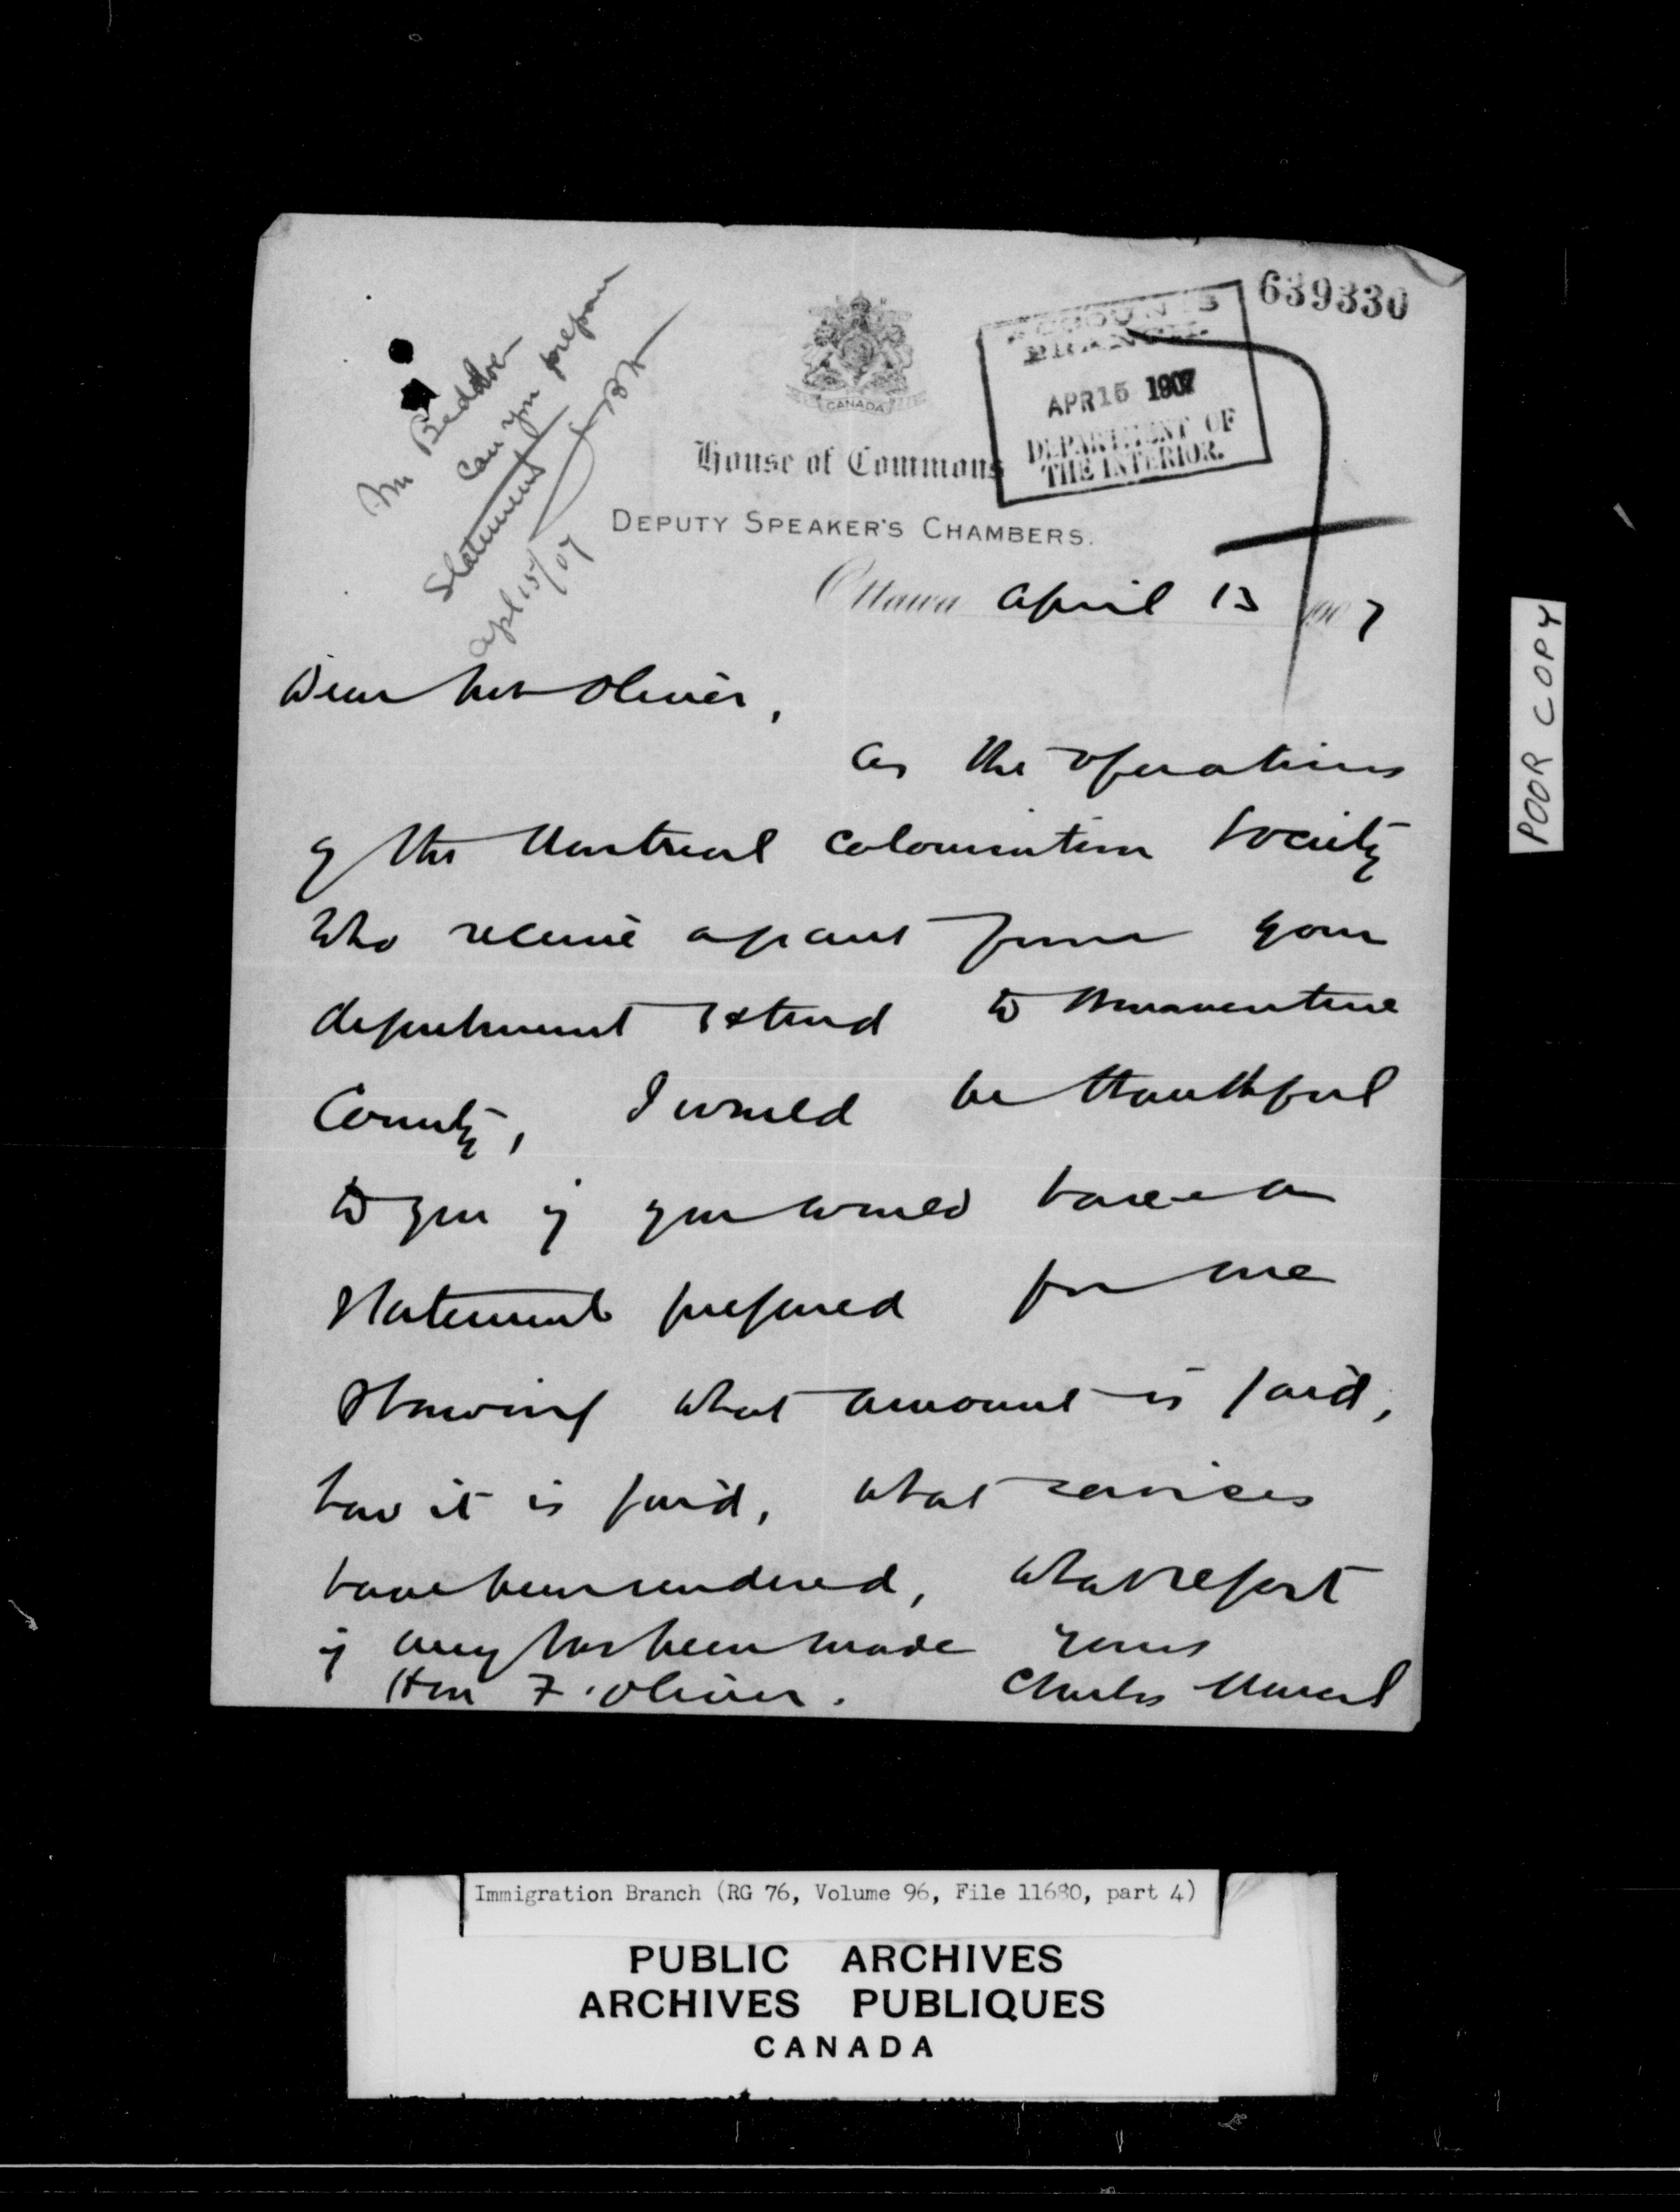 639330
ACCOUNTS
BRANCH
APR 15 1907
DEPARTMENT OF
THE INTERIOR.
CANADA
House of Commons
DEPUTY SPEAKER'S CHAMBERS.
Mr Beddoe
Can you prepare
Statement
Apl 15/07
Ottawa April 13 1907
Dear Mr Oliver,
As the operations
of the Montreal Colonisation Society
who receive a grant from your
department extend to Bonaventure
County, I would be thankful
to you if you would have a
statement prepared for me
showing what amount is paid,
how it is paid, what services
have been rendered, what report
if any has been made Yours
Hon F. Oliver. Charles Marcil
POOR COPY
Immigration Branch (RG 76, Volume 96, File 11680, part 4)
PUBLIC ARCHIVES
ARCHIVES PUBLIQUES
CANADA